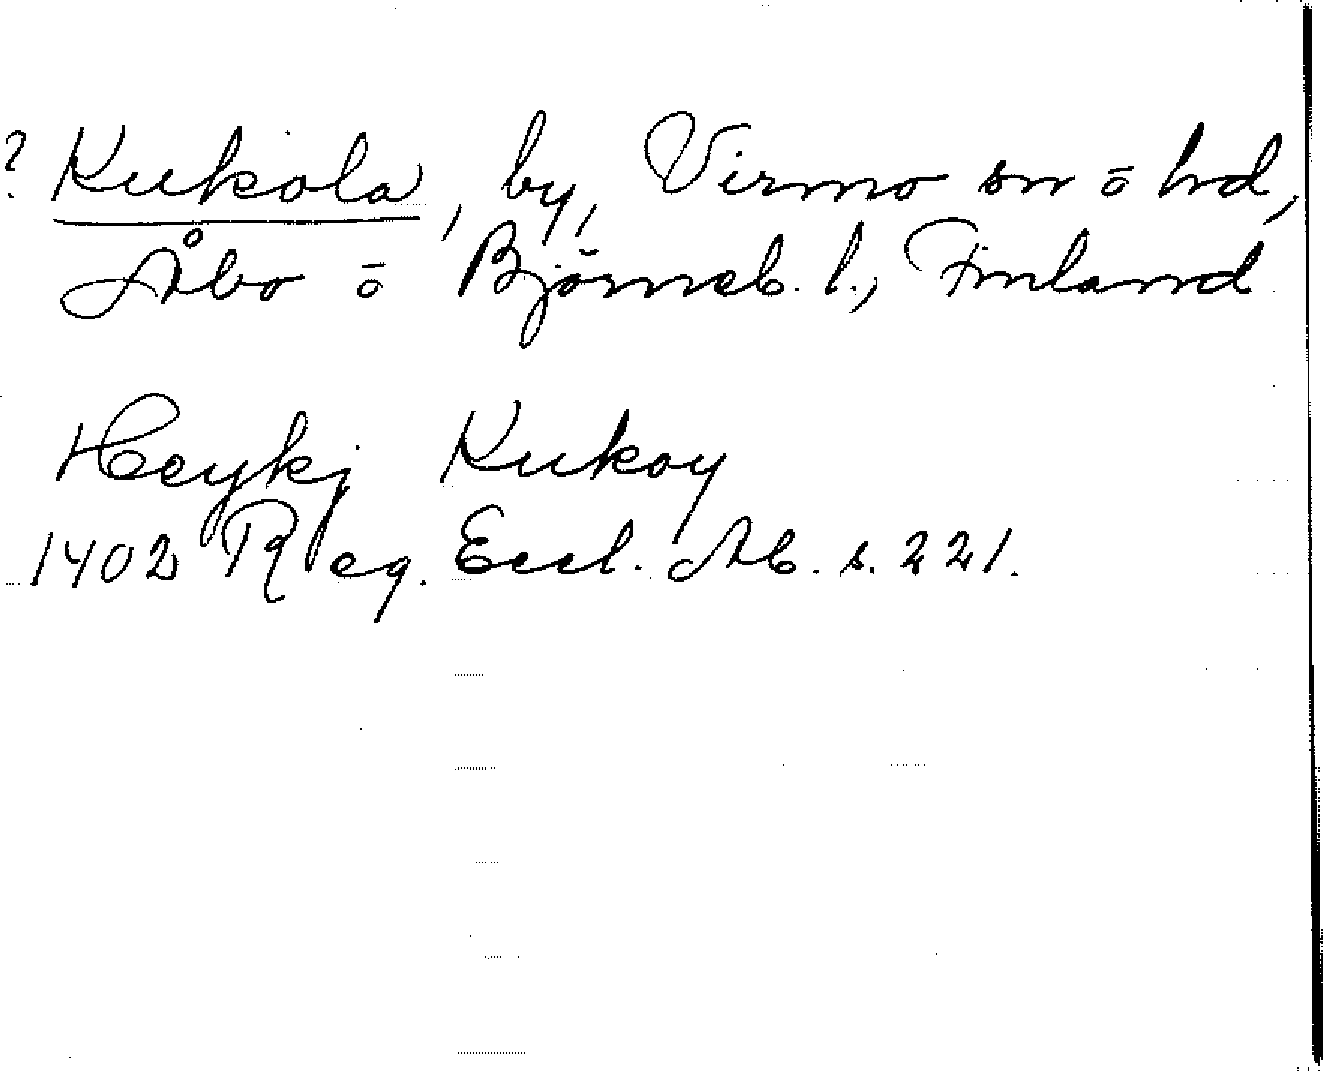 ? Kukola, by, Virmo sn ō hd,
Åbo ō Björneb. l., Finland
Heykj Kukoy
1402 Reg. Eccl. Ab. s. 221.